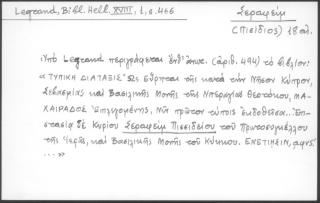 Legrand, Bibl. Hell. XVIII, 1, σ. 466
Σεραφεὶμ
(Πισίδιος) 18 αἰ.
Ὑπὸ Legrand περιγράφεται (ἀριθ. 494) τὸ βιβλίον:
«ΤΥΠΙΚΗ ΔΙΑΤΑΞΙΣ Ὡς Εὕρηται τῆς κατὰ τὴν Νῆσον Κύπρον,
Σεβασμίας καὶ Βασιλικῆς Μονῆς τῆς Ὑπεραγίας Θεοτόκου, ΜΑ-
ΧΑΙΡΑΔΟΣ Ἐπιλεγομένης, Νῦν πρῶτον τύποις ἐκδοθεῖσα... Ἐπι-
στασίᾳ δὲ Κυρίου Σεραφεὶμ Πισσιδείου τοῦ Πρωτοσυγκέλλου
τῆς Ἱερᾶς, καὶ Βασιλικῆς Μονῆς τοῦ Κύκκου. ΕΝΕΤΙΗΣΙΝ,
... »